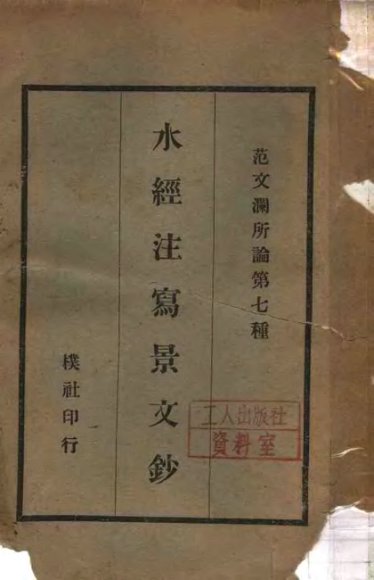 范文瀾所論第七種
水經注寫景文鈔
樸社印行
工人出版社
資料室